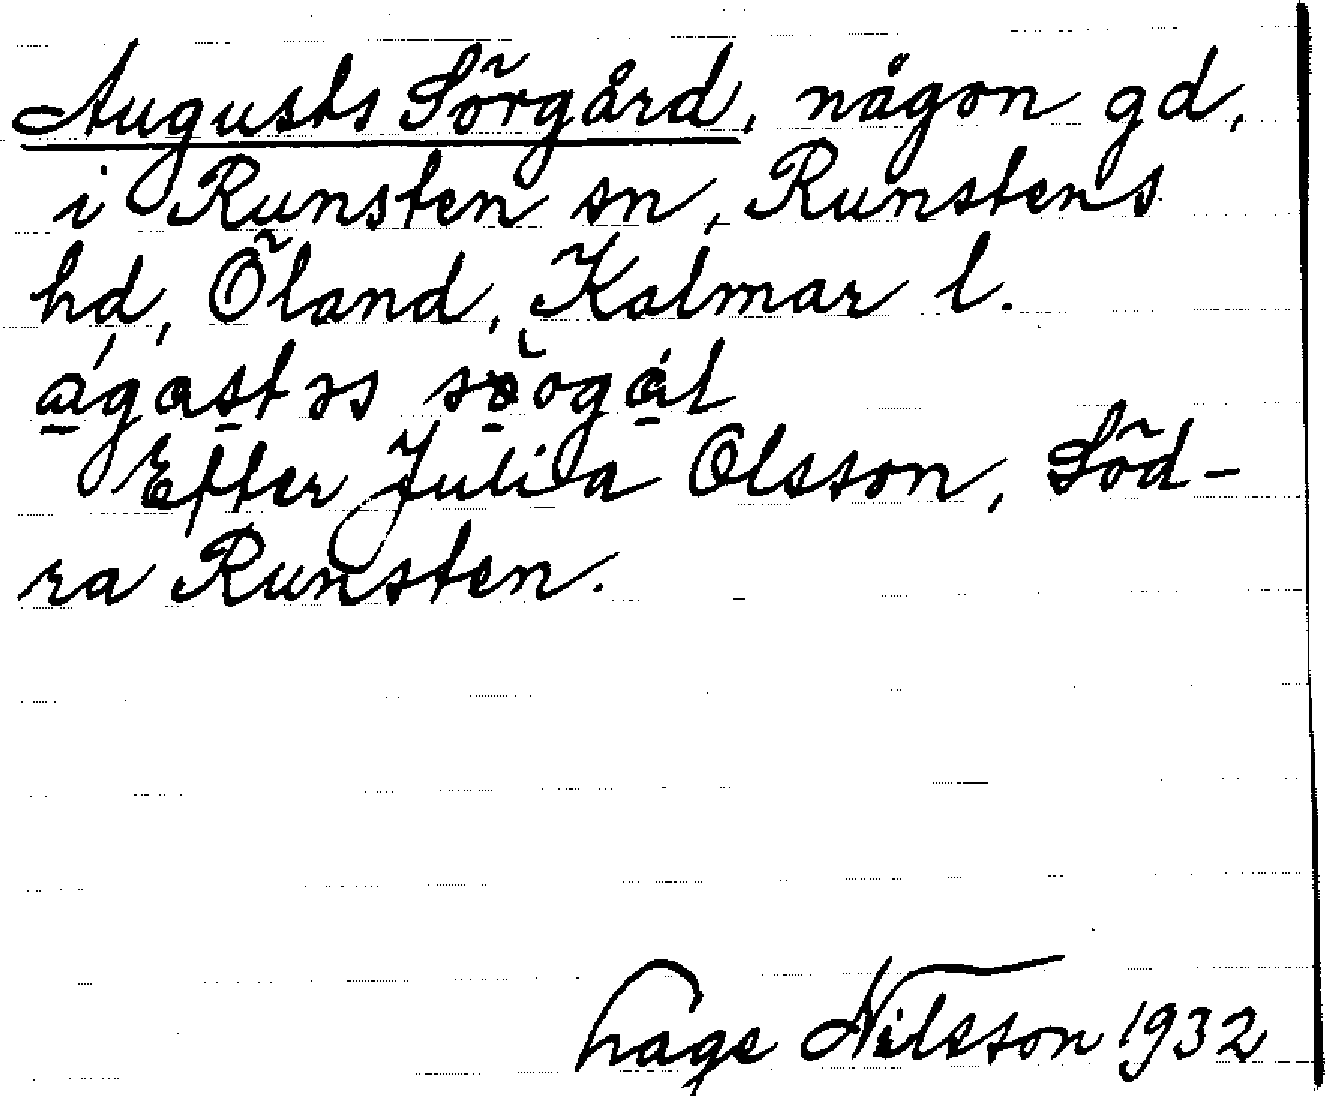 Augusts Sörgård, någon gd,
i Runsten sn, Runstens
hd, Öland, Kalmar l.
Efter Julia Olsson, Söd-
ra Runsten.
Hage Nilsson 1932